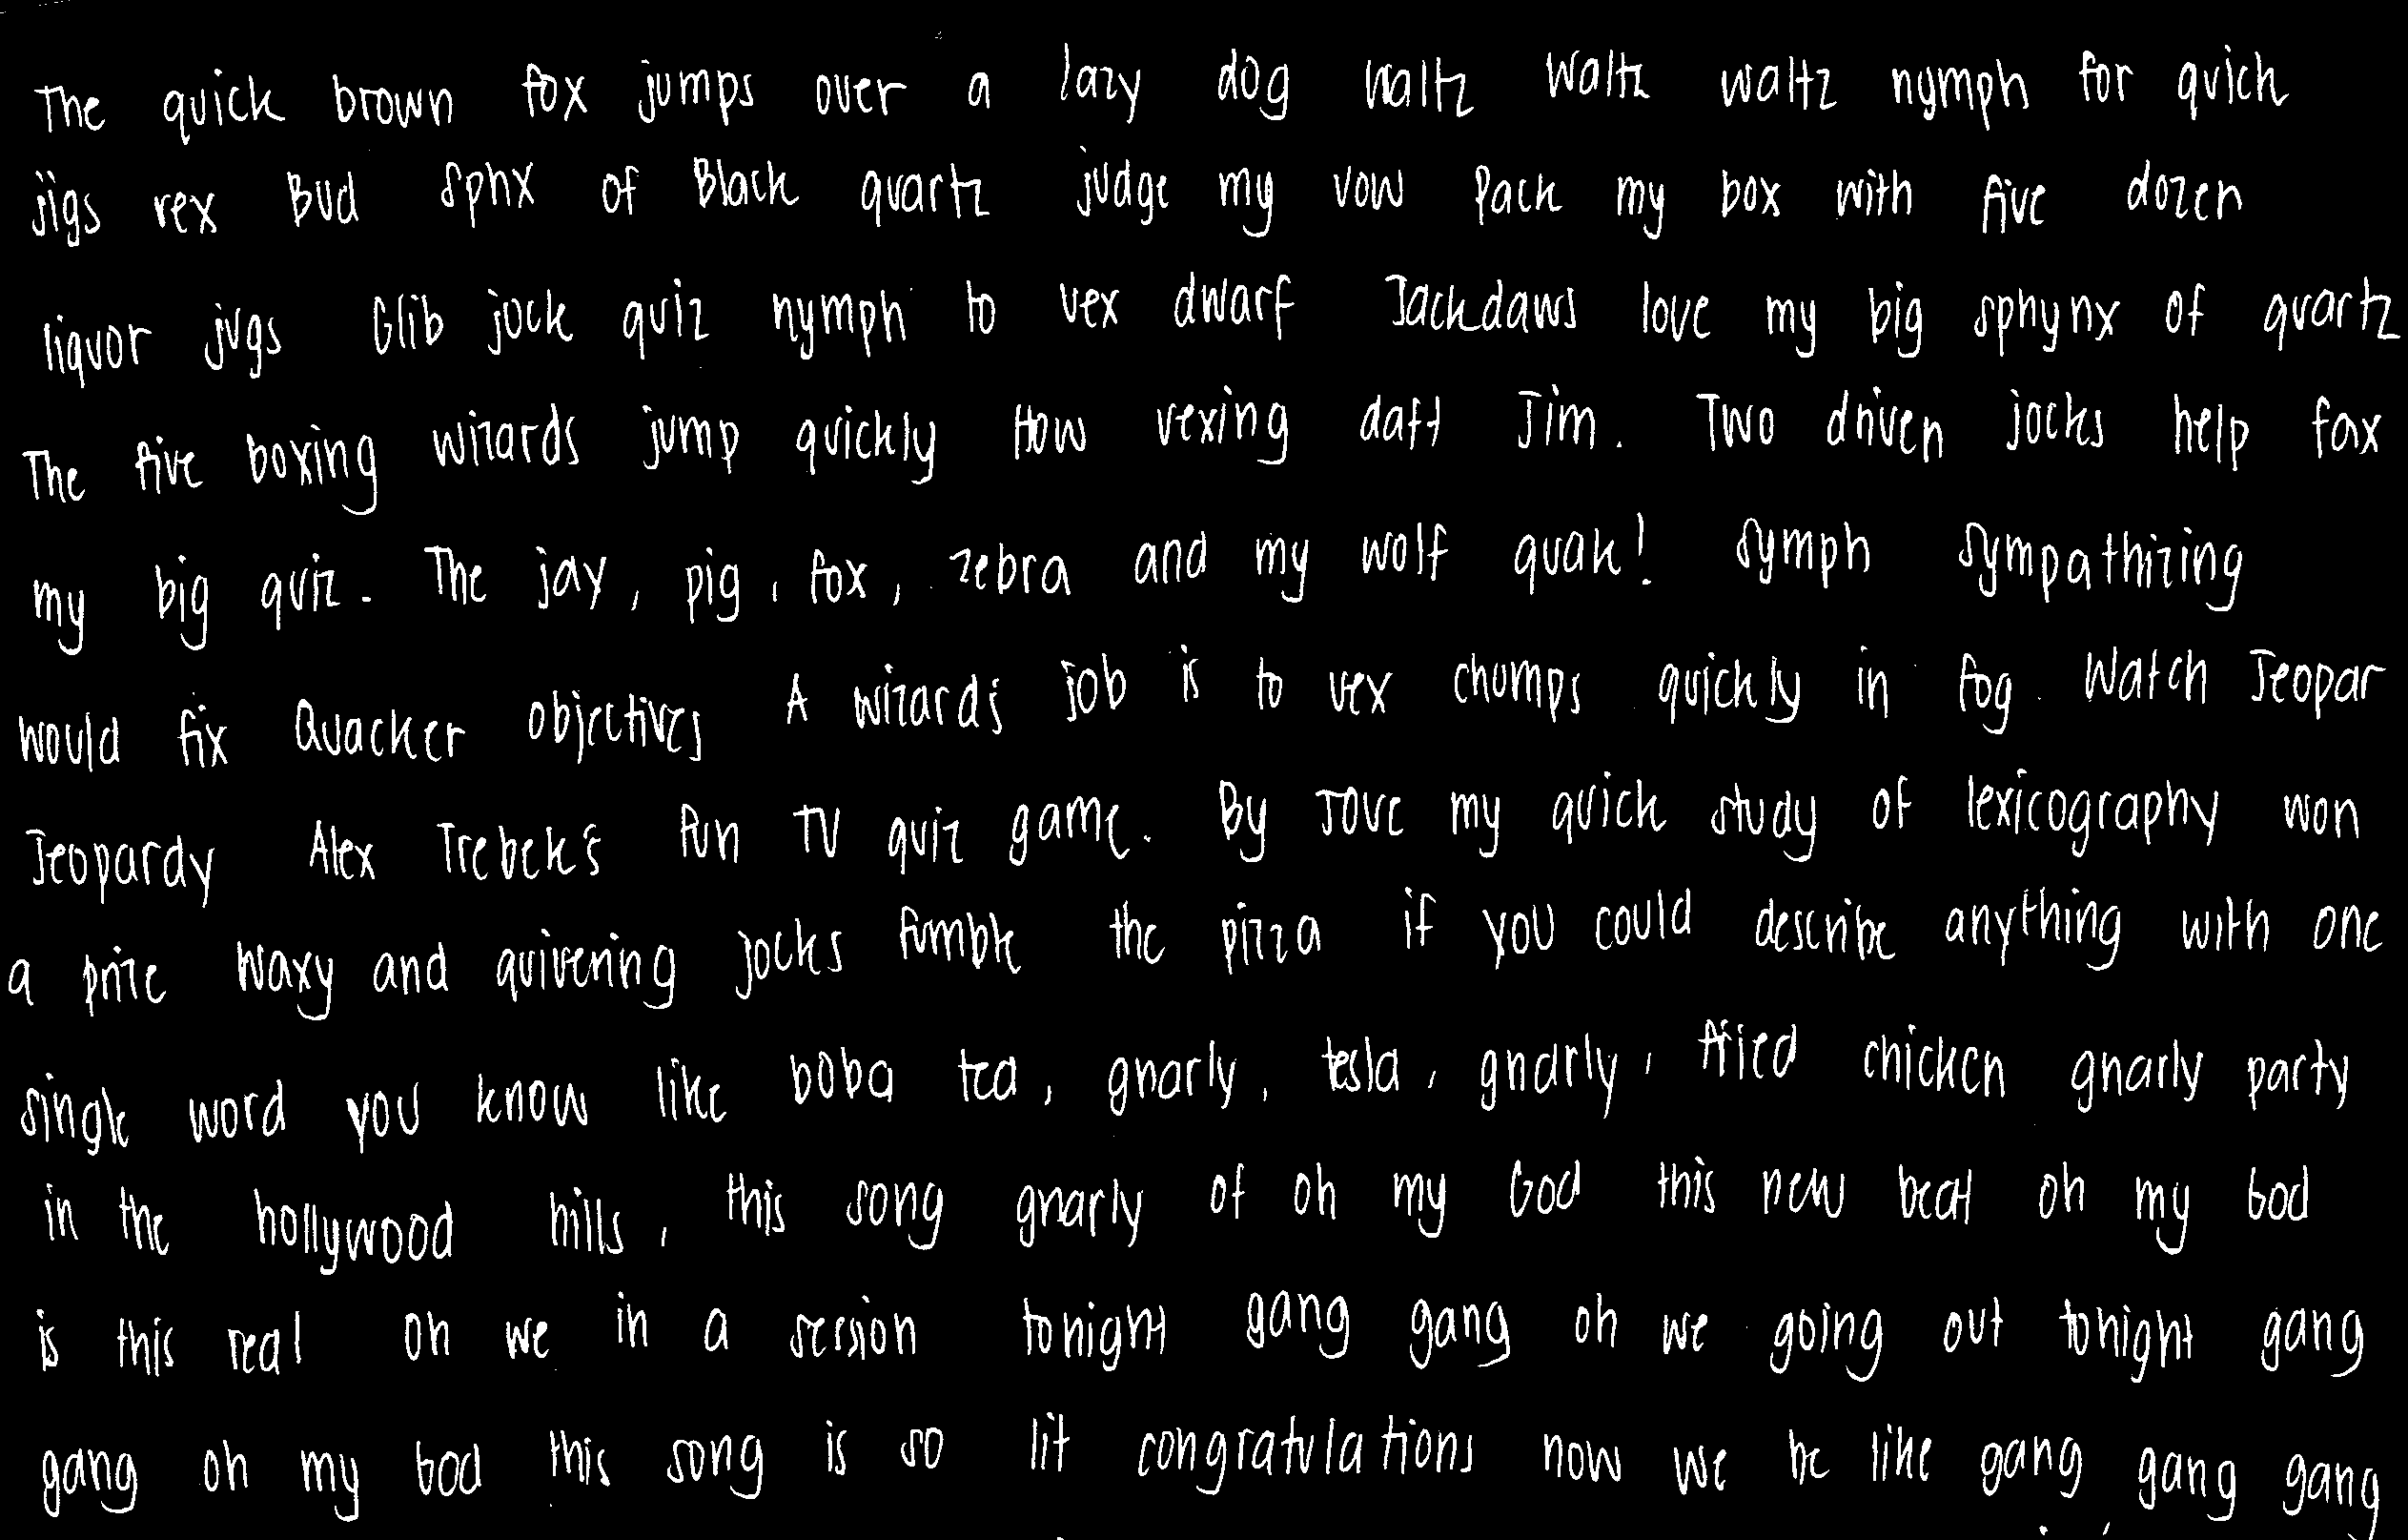 The quick brown fox jumps over a lazy dog waltz waltz waltz nymph for quick
jigs rex Bud Sphx of Black quartz judge my vow Pack my box with five dozen
liquor jugs Glib jock quiz nymph to vex dwarf Jackdaws love my big sphynx of quartz
The five boxing wizards jump quickly How vexing daft Jim. Two driven jocks help fax
my big quiz. The jay, pig, fox, zebra and my wolf quak! Symph Sympathizing
would fix Quacker objectives A wizard's job is to vex chumps quickly in fog. Watch Jeopar
Jeopardy Alex Trebek's Fun TV quiz game. By Jove my quick study of lexicography won
a prize Waxy and quivering jocks fumble the pizza if you could describe anything with one
single word you know like boba tea, gnarly, tesla, gnarly, fried chicken gnarly party
in the hollywood hills, this song gnarly of oh my God this new beat oh my God
is this real oh we in a session tonight gang gang oh we going out tonight gang
gang oh my God this song is so lit congratulations now we be like gang gang gang